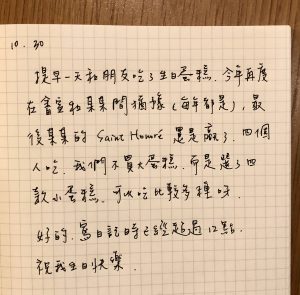 10.30
提早一天和朋友吃了生日蛋糕.今年再度
在畬室和某某間猶豫(每年都是),最
後某某的 Saint Honoré 還是贏了.四個
人吃,我們不買大蛋糕,而是選了四
款小蛋糕,可以吃比較多種呀.
好的.寫日記時已經超過12點.
祝我生日快樂.